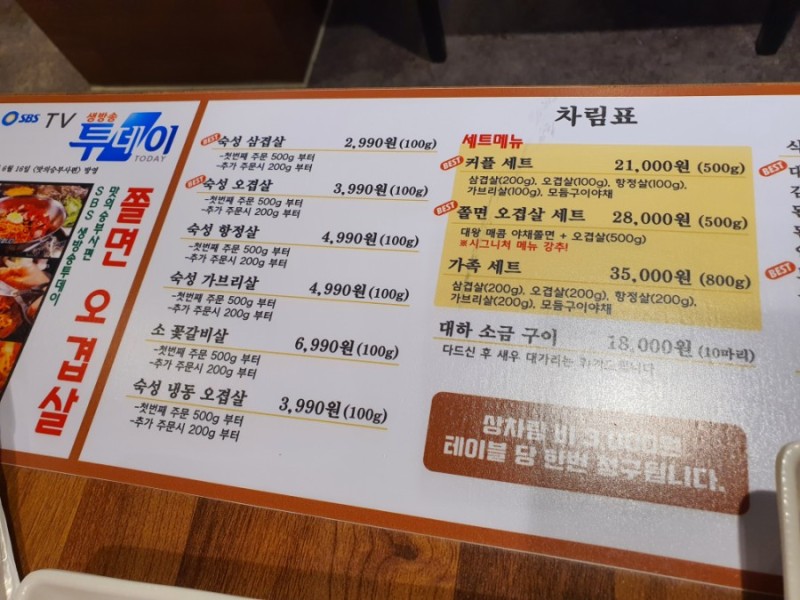 SBS TV 생방송
투데이
TODAY
맛의승부사편
SBS 생방송투데이
쫄면 오겹살
차림표
BEST 숙성 삼겹살 2,990원 (100g)
-첫번째 주문 500g 부터
-추가 주문시 200g 부터
BEST 숙성 오겹살 3,990원 (100g)
-첫번째 주문 500g 부터
-추가 주문시 200g 부터
숙성 항정살 4,990원 (100g)
-첫번째 주문 500g 부터
-추가 주문시 200g 부터
숙성 가브리살 4,990원 (100g)
-첫번째 주문 500g 부터
-추가 주문시 200g 부터
소 꽃갈비살 6,990원 (100g)
-첫번째 주문 500g 부터
-추가 주문시 200g 부터
숙성 냉동 오겹살 3,990원 (100g)
-첫번째 주문 500g 부터
-추가 주문시 200g 부터
세트메뉴
BEST 커플 세트 21,000원 (500g)
삼겹살(200g), 오겹살(100g), 항정살(100g),
가브리살(100g), 모듬구이야채
BEST 쫄면 오겹살 세트 28,000원 (500g)
대왕 매콤 야채쫄면 + 오겹살(500g)
※시그니처 메뉴 강추!
가족 세트 35,000원 (800g)
삼겹살(200g), 오겹살(200g), 항정살(200g),
가브리살(200g), 모듬구이야채
대하 소금 구이 18,000원 (10마리)
다드신 후 새우 대가리는
상차림 비 3,000원
테이블 당 한번 청구됩니다.
BEST
BEST